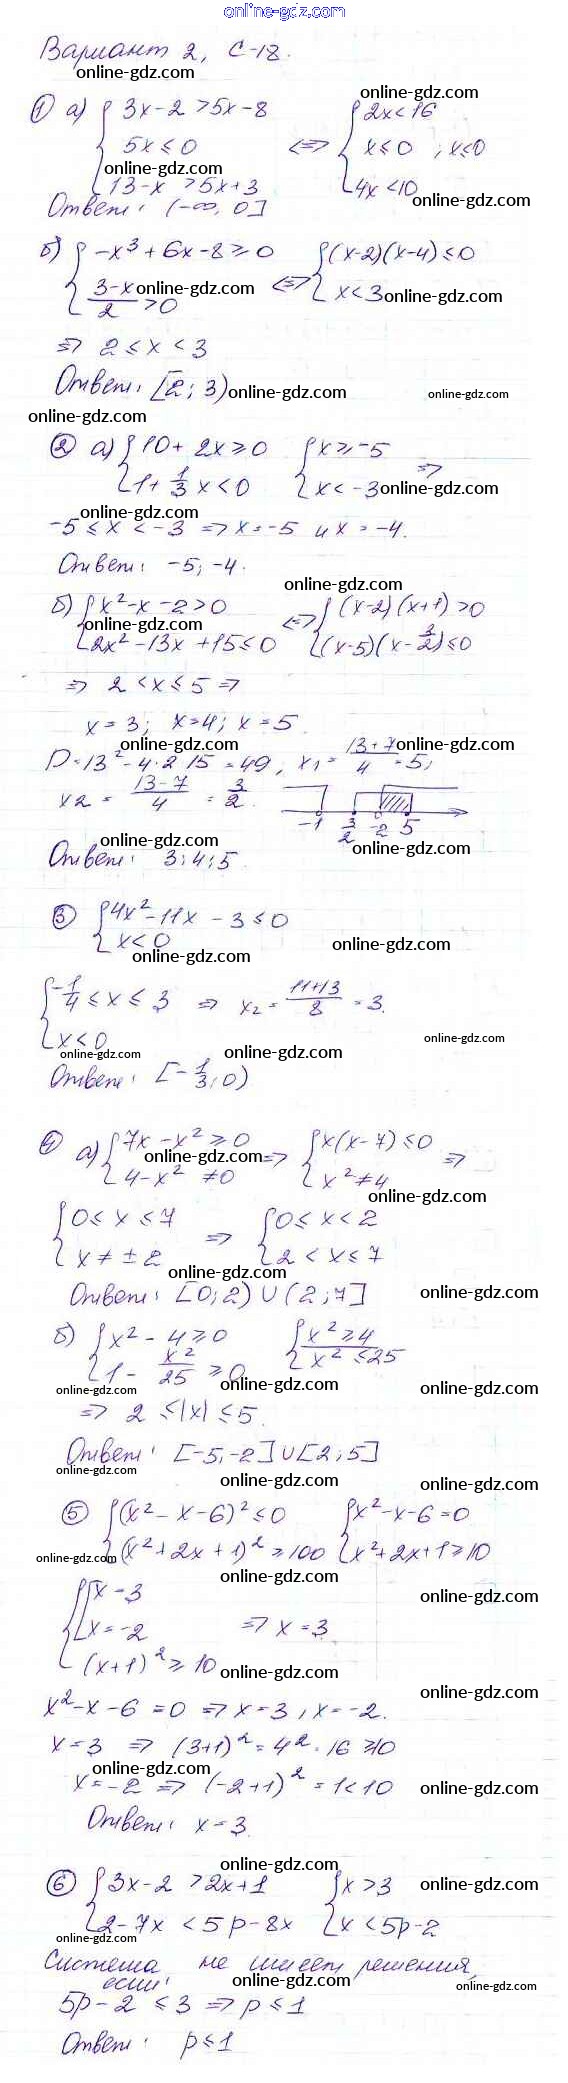 online-gdz.com
Вариант 2, С-18.
online-gdz.com
① а) { 3x-2 > 5x-8 online-gdz.com { 2x < 16
5x ≤ 0 <=> x ≤ 0 , x≤0
online-gdz.com
13-x > 5x+3 4x < 10
Ответ: (-∞, 0] online-gdz.com
б) { -x³ + 6x - 8 ≥ 0 { (x-2)(x-4) ≤ 0
(3-x)/2 > 0 online-gdz.com <=> x < 3 online-gdz.com
=> 2 ≤ x < 3
Ответ: [2; 3) online-gdz.com online-gdz.com
online-gdz.com
② а) { 10 + 2x ≥ 0 { x ≥ -5
1 + 1/3 x < 0 x < -3 => online-gdz.com
online-gdz.com
-5 ≤ x < -3 => x = -5 и x = -4.
Ответ: -5; -4.
online-gdz.com
б) { x² - x - 2 > 0 { (x-2)(x+1) > 0
online-gdz.com <=>
2x² - 13x + 15 ≤ 0 (x-5)(x - 3/2) ≤ 0
=> 2 < x ≤ 5 =>
x = 3; x = 4; x = 5
online-gdz.com online-gdz.com
D = 13² - 4·2 15 = 49, x₁ = (13+7)/4 = 5;
x₂ = (13-7)/4 = 3/2.
-1 3/2 -2 5
online-gdz.com online-gdz.com
Ответ: 3; 4; 5
③ { 4x² - 11x - 3 ≤ 0
x < 0 online-gdz.com
online-gdz.com
{ -1/4 ≤ x ≤ 3 => x₂ = (11+13)/8 = 3.
x < 0 online-gdz.com
online-gdz.com online-gdz.com
Ответ: [-1/3; 0)
④ а) { 7x - x² ≥ 0 => { x(x-7) ≤ 0 =>
online-gdz.com
4 - x² ≠ 0 x² ≠ 4
online-gdz.com
{ 0 ≤ x ≤ 7 => { 0 ≤ x < 2
x ≠ ± 2 2 < x ≤ 7
online-gdz.com
Ответ: [0; 2) ∪ (2; 7] online-gdz.com
б) { x² - 4 ≥ 0 { x² ≥ 4
1 - x²/25 ≥ 0 x² ≤ 25
online-gdz.com online-gdz.com online-gdz.com
=> 2 ≤ |x| ≤ 5.
Ответ: [-5; -2] ∪ [2; 5]
online-gdz.com online-gdz.com online-gdz.com
⑤ { (x² - x - 6)² ≤ 0 { x² - x - 6 = 0
(x² + 2x + 1)² ≥ 100 x² + 2x + 1 ≥ 10
online-gdz.com online-gdz.com
{ [ x = 3 online-gdz.com
x = -2 => x = 3
(x+1)² ≥ 10 online-gdz.com
online-gdz.com
x² - x - 6 = 0 => x = 3, x = -2.
x = 3 => (3+1)² = 4² = 16 ≥ 10
online-gdz.com
x = -2 => (-2+1)² = 1 < 10 online-gdz.com
Ответ: x = 3
online-gdz.com
⑥ { 3x - 2 > 2x + 1 { x > 3 online-gdz.com
2 - 7x < 5p - 8x x < 5p - 2
online-gdz.com online-gdz.com
Система не имеет решения,
если: online-gdz.com online-gdz.com
5p - 2 ≤ 3 => p ≤ 1
Ответ: p ≤ 1